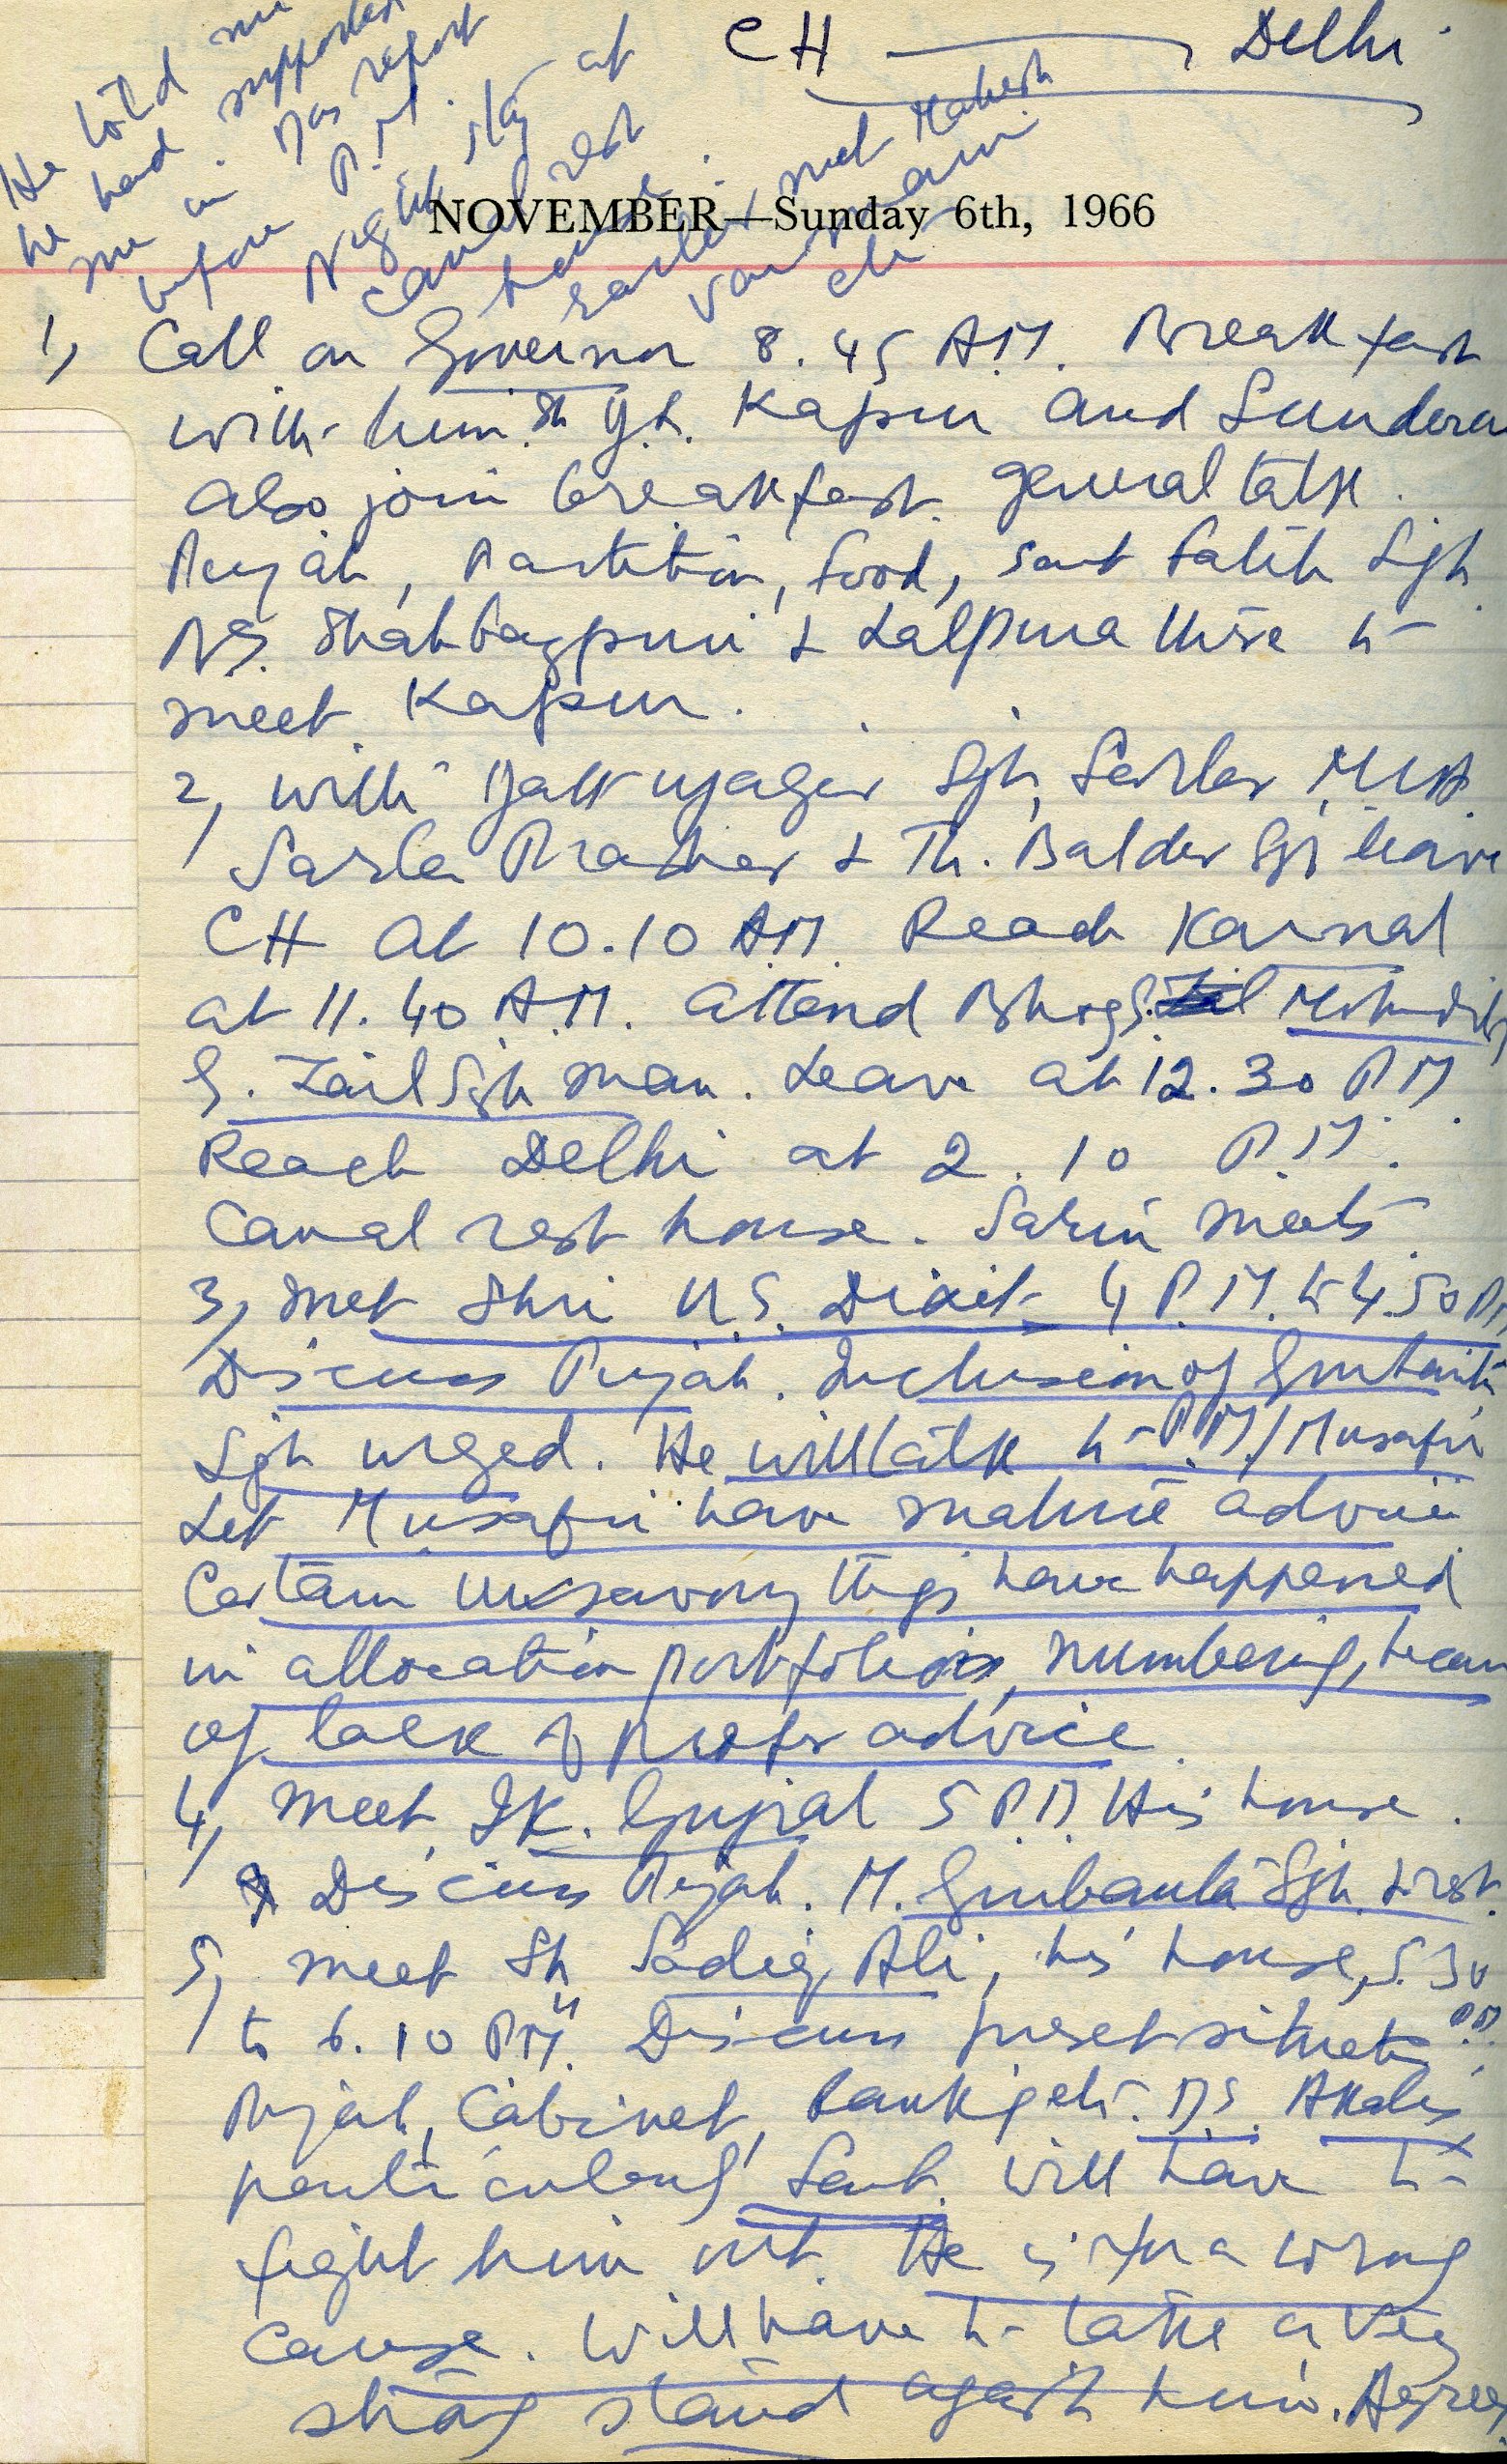 CH — Delhi
He told me
he had supported
me in Das report
before P.M.
Night stay at
canal rest
house.
met Mahesh
etc
NOVEMBER—Sunday 6th, 1966
1, Call on Governor 8.45 A.M. Breakfast
with him. Sh Y.L. Kapur and
also join breakfast. general talk.
Punjab, Partition, food, Sant Fateh Sgh
NS. Shahbazpuri & Lalpura there to
meet Kapur.
2, with Sgh,
Sarla Prasher & Th. Baldev Sgh leave
CH at 10.10 A.M. Reach Karnal
at 11.40 A.M. attend Bhog S.
S. Zail Sgh man. Leave at 12.30 P.M.
Reach Delhi at 2.10 P.M.
Canal rest house. Sarin meets
3, met Shri U.S. Dixit 4 P.M. to 4.50 PM
Discuss Punjab. Inclusion of
Sgh urged. He will talk to P.M/Musafir
Let Musafir have mature advice
Certain unsavoury things have happened
in allocation portfolios, numbering,
of lack of proper advice.
4, meet I.K. Gujral 5 P.M His house.
Discuss Punjab. M. Gurbanta Sgh & rest.
5, meet Sh Sadiq Ali, his house, 5.30
to 6.10 P.M. Discuss preset situation
Punjab, Cabinet, etc. D.S. Akalis
particularly Sant. Will have to
fight him out. He is for a wrong
cause. Will have to take a very
strong stand against him. Agrees